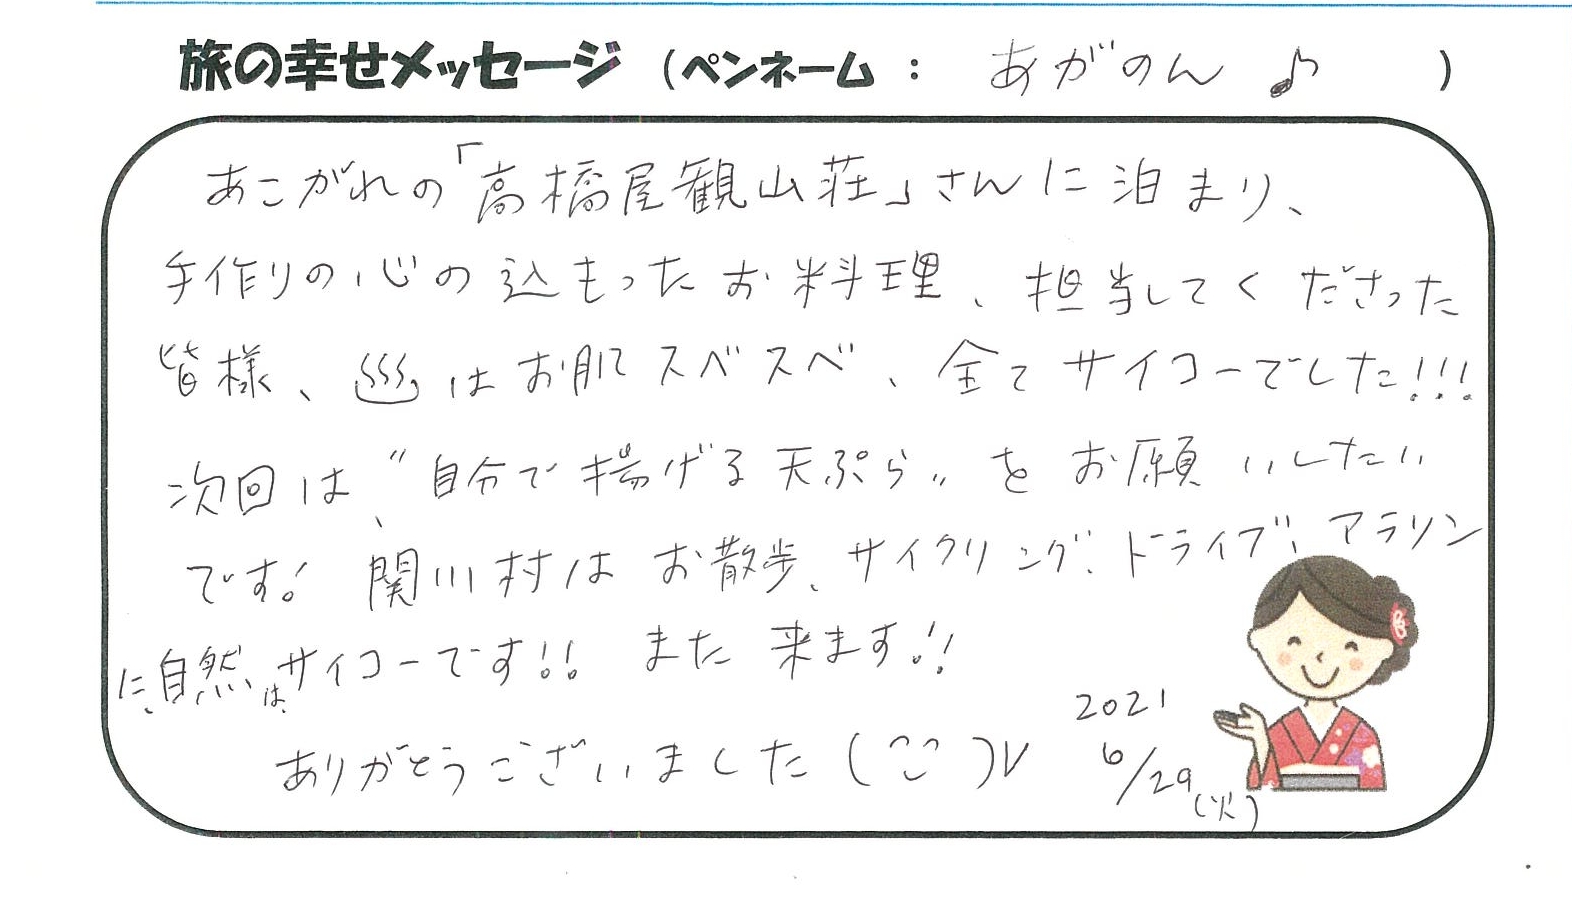 旅の幸せメッセージ (ペンネーム : あがのん ♪ )
あこがれの「高橋屋観山荘」さんに泊まり、
手作りの心の込もったお料理、担当してくださった
皆様、♨はお肌スベスベ、全てサイコーでした!!!
次回は、"自分で揚げる天ぷら"をお願いしたい
です! 関川村はお散歩、サイクリング、ドライブ、アラリン
に、自然は、サイコーです!! また来ます!!
ありがとうございました(^^)v
2021
6/29(火)